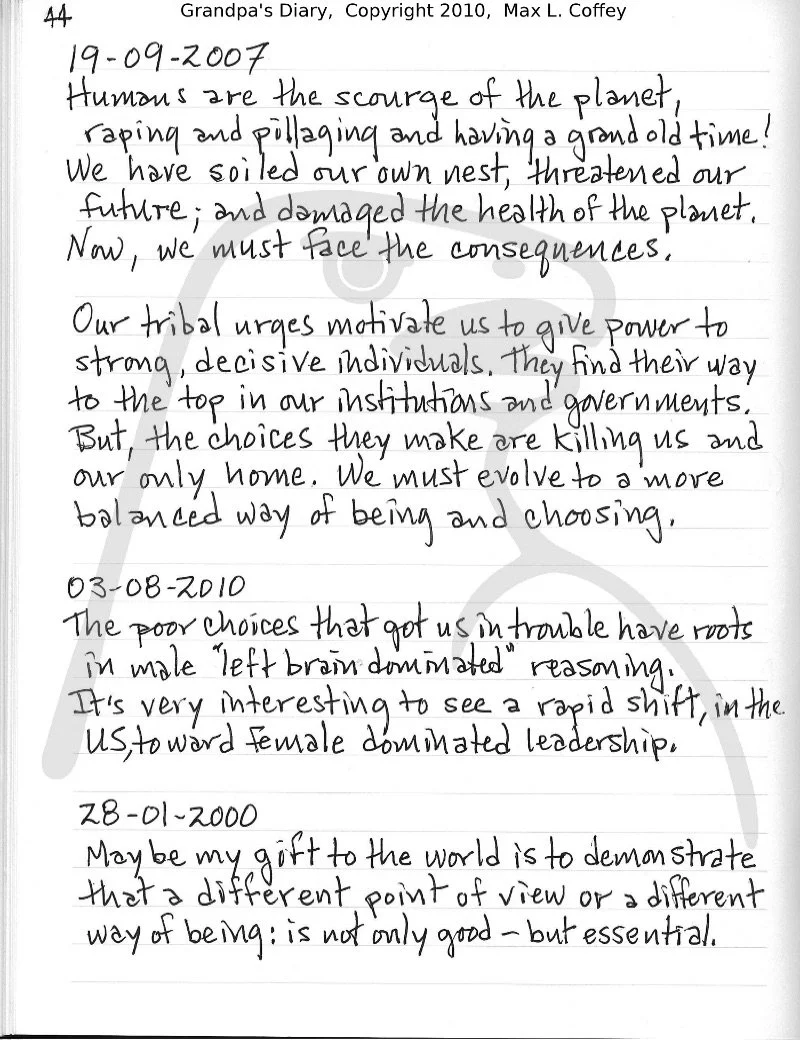 44
Grandpa's Diary, Copyright 2010, Max L. Coffey
19-09-2007
Humans are the scourge of the planet,
raping and pillaging and having a grand old time!
We have soiled our own nest, threatened our
future; and damaged the health of the planet.
Now, we must face the consequences.
Our tribal urges motivate us to give power to
strong, decisive individuals. They find their way
to the top in our institutions and governments.
But, the choices they make are killing us and
our only home. We must evolve to a more
balanced way of being and choosing.
03-08-2010
The poor choices that got us in trouble have roots
in male "left brain dominated" reasoning.
It's very interesting to see a rapid shift, in the
US, toward female dominated leadership.
28-01-2000
Maybe my gift to the world is to demonstrate
that a different point of view or a different
way of being: is not only good - but essential.